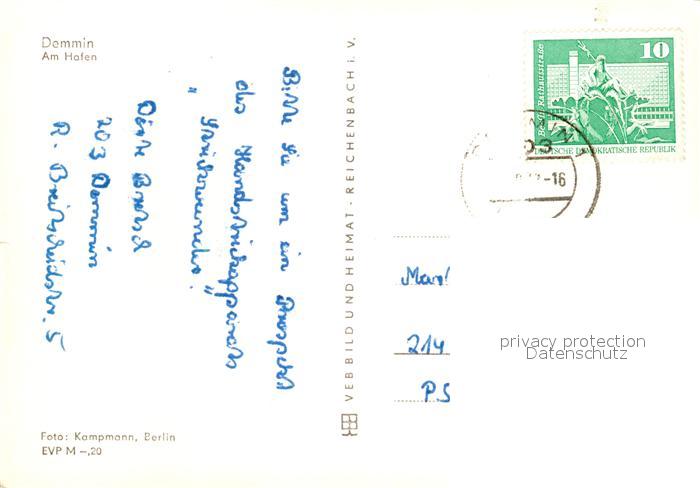 Demmin
Am Hafen
Bitte Sie um ein Prospekt
des Handstrickapparats
" Strickwunder. "
Dörte
203 Demmin
R. Breitscheidstr. 5
Foto: Kampmann, Berlin
EVP M –,20
VEB BILD UND HEIMAT · REICHENBACH i. V.
10
Berlin, Rathausstraße
DEUTSCHE DEMOKRATISCHE REPUBLIK
-16
214
privacy protection
Datenschutz